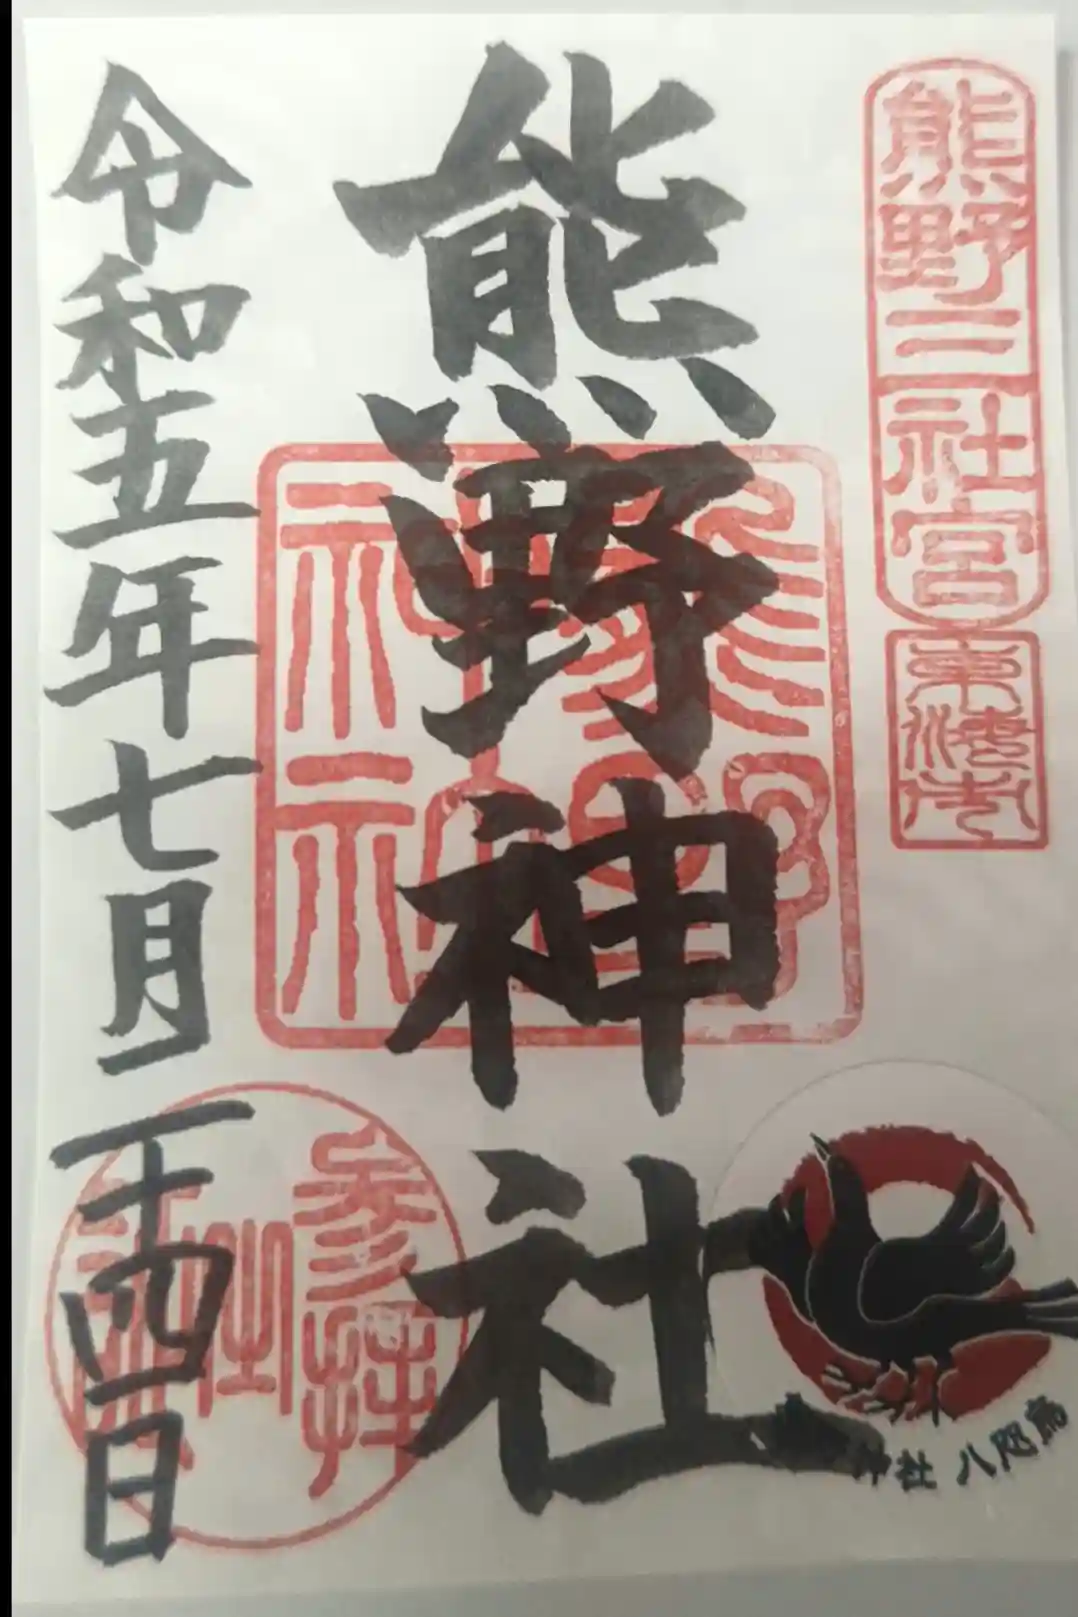 熊野三社宮
東海市
熊野神社
熊野神社
参拝
令和五年七月二十四日
神社 八咫烏